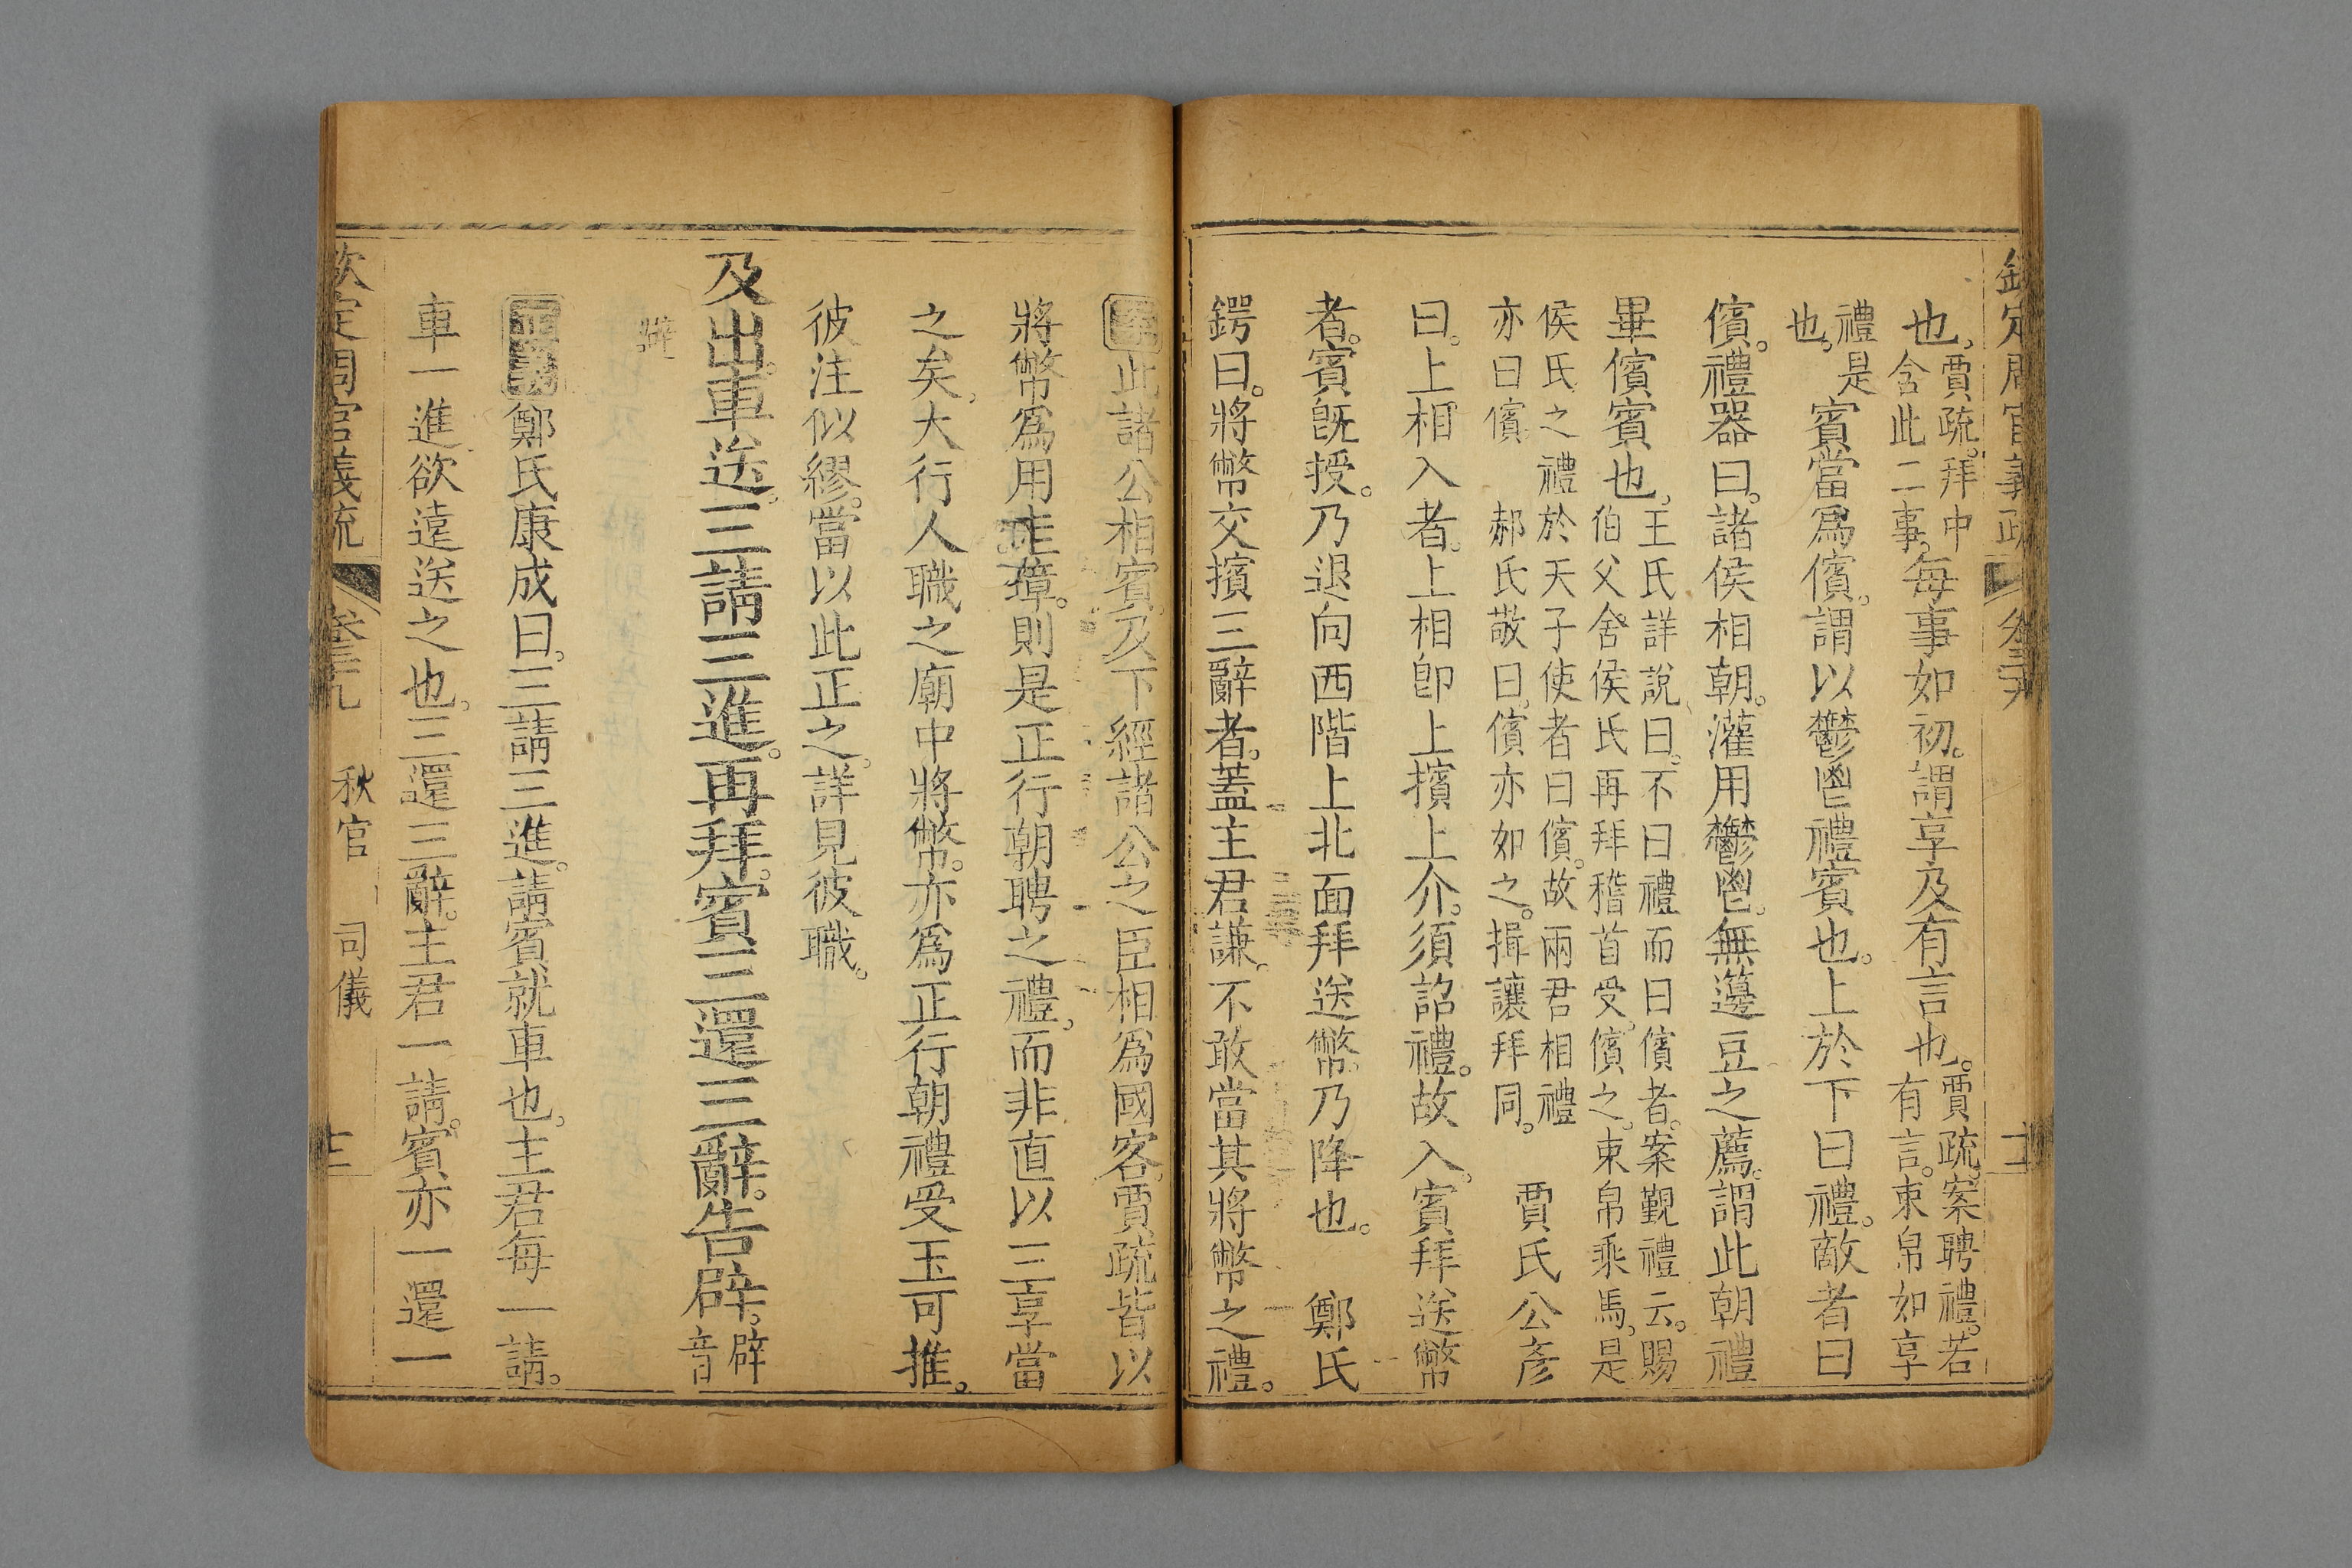 欽定周官義疏 卷三九
也賈疏拜中
含此二事每事如初謂享及有言也賈疏案聘禮若
有言束帛如享
禮是
也賓當爲儐謂以鬱鬯禮賓也上於下曰禮敵者曰
儐禮器曰諸侯相朝灌用鬱鬯無籩豆之薦謂此朝禮
畢儐賓也王氏詳說曰不曰禮而曰儐者案覲禮云賜
伯父舍侯氏再拜稽首受儐之束帛乘馬是
侯氏之禮於天子使者曰儐故兩君相禮
亦曰儐 郝氏敬曰儐亦如之揖讓拜同 賈氏公彥
曰上相入者上相卽上擯上介須詔禮故入賓拜送幣
者賓旣授乃退向西階上北面拜送幣乃降也 鄭氏
鍔曰將幣交擯三辭者蓋主君謙不敢當其將幣之禮
案此諸公相賓及下經諸公之臣相爲國客賈疏皆以
將幣爲用圭璋則是正行朝聘之禮而非直以三享當
之矣大行人職之廟中將幣亦爲正行朝禮受玉可推
彼注似繆當以此正之詳見彼職
及出車送三請三進再拜賓三還三辭告辟辟音
避
正義鄭氏康成曰三請三進請賓就車也主君每一請
車一進欲遠送之也三還三辭主君一請賓亦一還一
欽定周官義疏 卷三九 秋官 司儀 十三